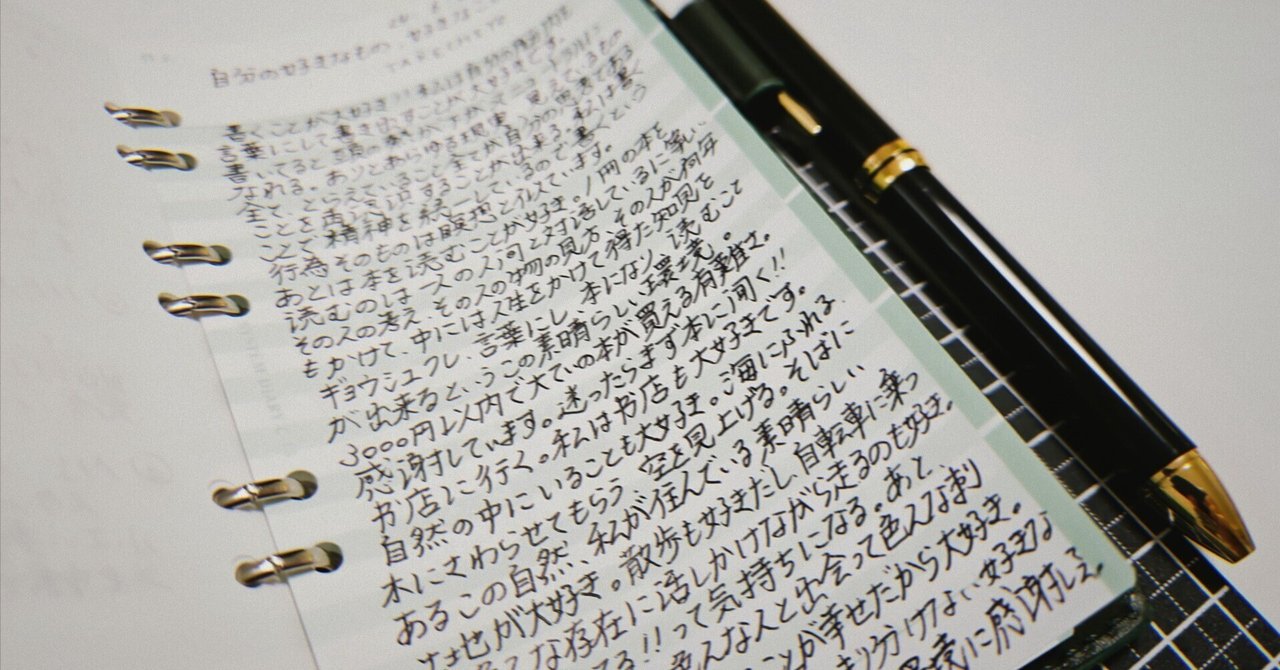 自分の好きなもの、好きなこと
書くことが大好き!!
言葉にして書き出すことが大好きです。
書いてると
なれる。ありとあらゆる現実、見えているもの
全て、とらえていること全てが自分の内実である
ことを再認識することが出来る。私は書く
ことで精神を統一しているので書くという
行為そのものは瞑想と化しています。
あとは本を読むことが好き。1冊の本を
読むのは一人の人間と対話しているに等しい
その人の考え、その人の物の見方、その人が何年
もかけて、中には人生をかけて得た知見を
ギョウシュクし、言葉にし、本になり、読むこと
が出来るというこの素晴らしい環境。
3000円以内で大ていの本が買える有難さ。
感謝しています。迷ったらまず本に聞く!!
書店に行く。私は書店も大好きです。
自然の中にいることも大好き。海にふれる
木にさわらせてもらう、空を見上げる。そばに
あるこの自然、私が住んでいる素晴らしい
土地が大好き。散歩も好きだし、自転車に乗っ
な存在に話しかけながら走るのも好き。
る!!って気持ちになる。あと
色んな人と出会って色んな刺
ことが幸せだから大好き。
り分けない好きな
環境に感謝しえ。